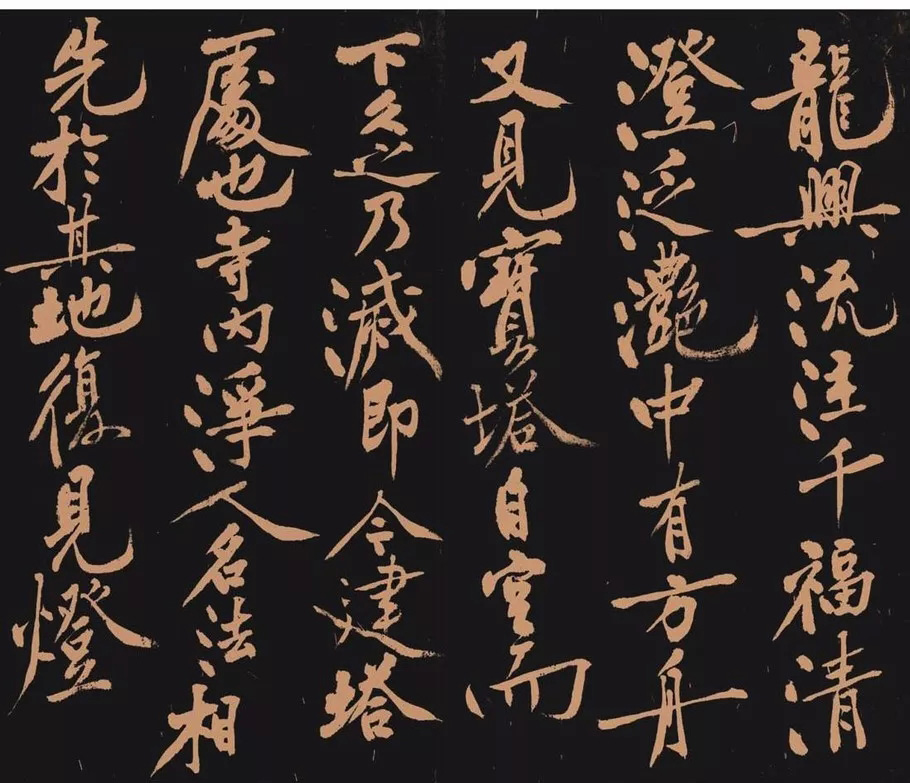 龍興流注千福清
澄泛灩中有方舟
又見寶塔自空而
下久之乃滅即今建塔
處也寺内淨人名法相
先於其地復見燈